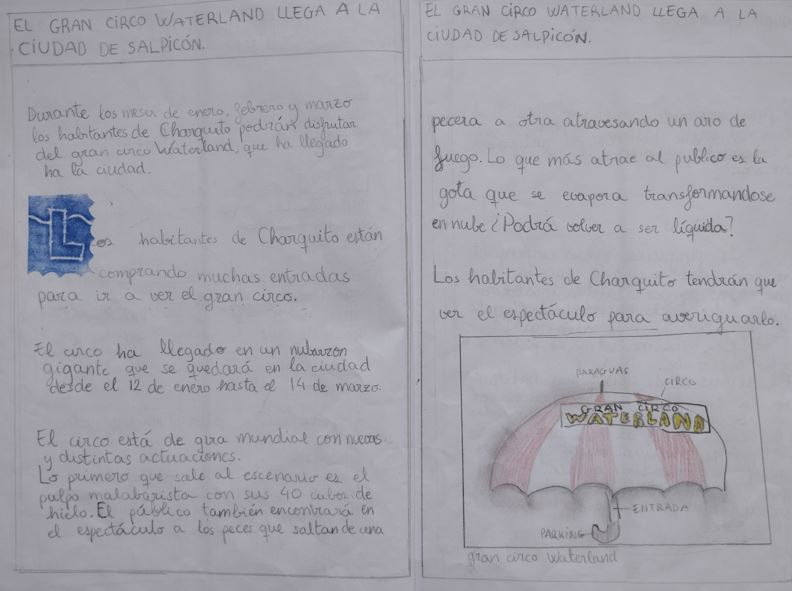 EL GRAN CIRCO WATERLAND LLEGA A LA
CIUDAD DE SALPICÓN.
Durante los meses de enero, febrero y marzo
los habitantes de Charquito podrán disfrutar
del gran circo Waterland, que ha llegado
ha la ciudad.
Los habitantes de Charquito están
comprando muchas entradas
para ir a ver el gran circo.
El circo ha llegado en un nubarrón
gigante que se quedará en la ciudad
desde el 12 de enero hasta el 14 de marzo.
El circo está de gira mundial con nuevas
y distintas actuaciones.
Lo primero que sale al escenario es el
pulpo malabarista con sus 40 cubos de
hielo. El público también encontrará en
el espectáculo a los peces que saltan de una
EL GRAN CIRCO WATERLAND LLEGA A LA
CIUDAD DE SALPICÓN.
pecera a otra atravesando un aro de
fuego. Lo que más atrae al publico es la
gota que se evapora transformandose
en nube ¿Podrá volver a ser líquida?
Los habitantes de Charquito tendrán que
ver el espectáculo para averiguarlo.
PARAGUAS
CIRCO
GRAN CIRCO
WATERLAND
ENTRADA
PARKING
gran circo Waterland